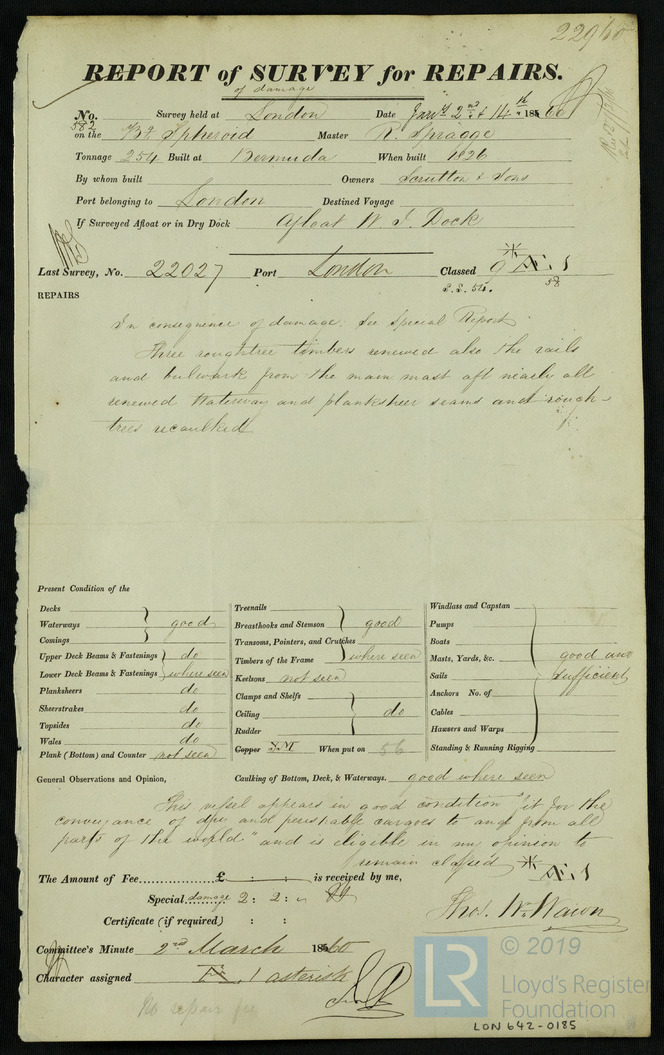 22960
REPORT of SURVEY for REPAIRS.
of damage
No. 582 Survey held at London Date Jany 2nd & 14th 1860
on the Bg Spheroid Master R. Spragge
Tonnage 254 Built at Bermuda When built 1826
By whom built Owners Scrutton & Sons
Port belonging to London Destined Voyage
If Surveyed Afloat or in Dry Dock Afloat W. I. Dock
Last Survey, No. 22027 Port London Classed Æ 1
58
REPAIRS
In consequence of damage. See Special Report
Three roughtree timbers renewed also the rails
and bulwark from the main mast aft nearly all
renewed Waterway and planksheer seams and rough-
trees recaulked
Present Condition of the
Decks
Waterways good
Comings
Upper Deck Beams & Fastenings do
Lower Deck Beams & Fastenings where seen
Planksheers do
Sheerstrakes do
Topsides do
Wales do
Plank (Bottom) and Counter not seen
Treenails
Breasthooks and Stemson good
Transoms, Pointers, and Crutches
Timbers of the Frame where seen
Keelsons not seen
Clamps and Shelfs
Ceiling do
Rudder
Copper Y.M When put on 56
Windlass and Capstan
Pumps
Boats
Masts, Yards, &c. good and
Sails sufficient
Anchors No. of
Cables
Hawsers and Warps
Standing & Running Rigging
General Observations and Opinion, Caulking of Bottom, Deck, & Waterways. good where seen
This vessel appears in good condition "fit for the
conveyance of dry and perishable cargoes to and from all
parts of the world" and is eligible in my opinion to
remain classed * Æ 1
The Amount of Fee £ : : is received by me,
Special damage 2 : 2 : "
Certificate (if required) : :
Thos. Wm. Wawn
Committee's Minute 2nd March 1860
Character assigned Æ 1 asterisk
No repair fee
© 2019
LR
Lloyd's Register
Foundation
LON 642-0185